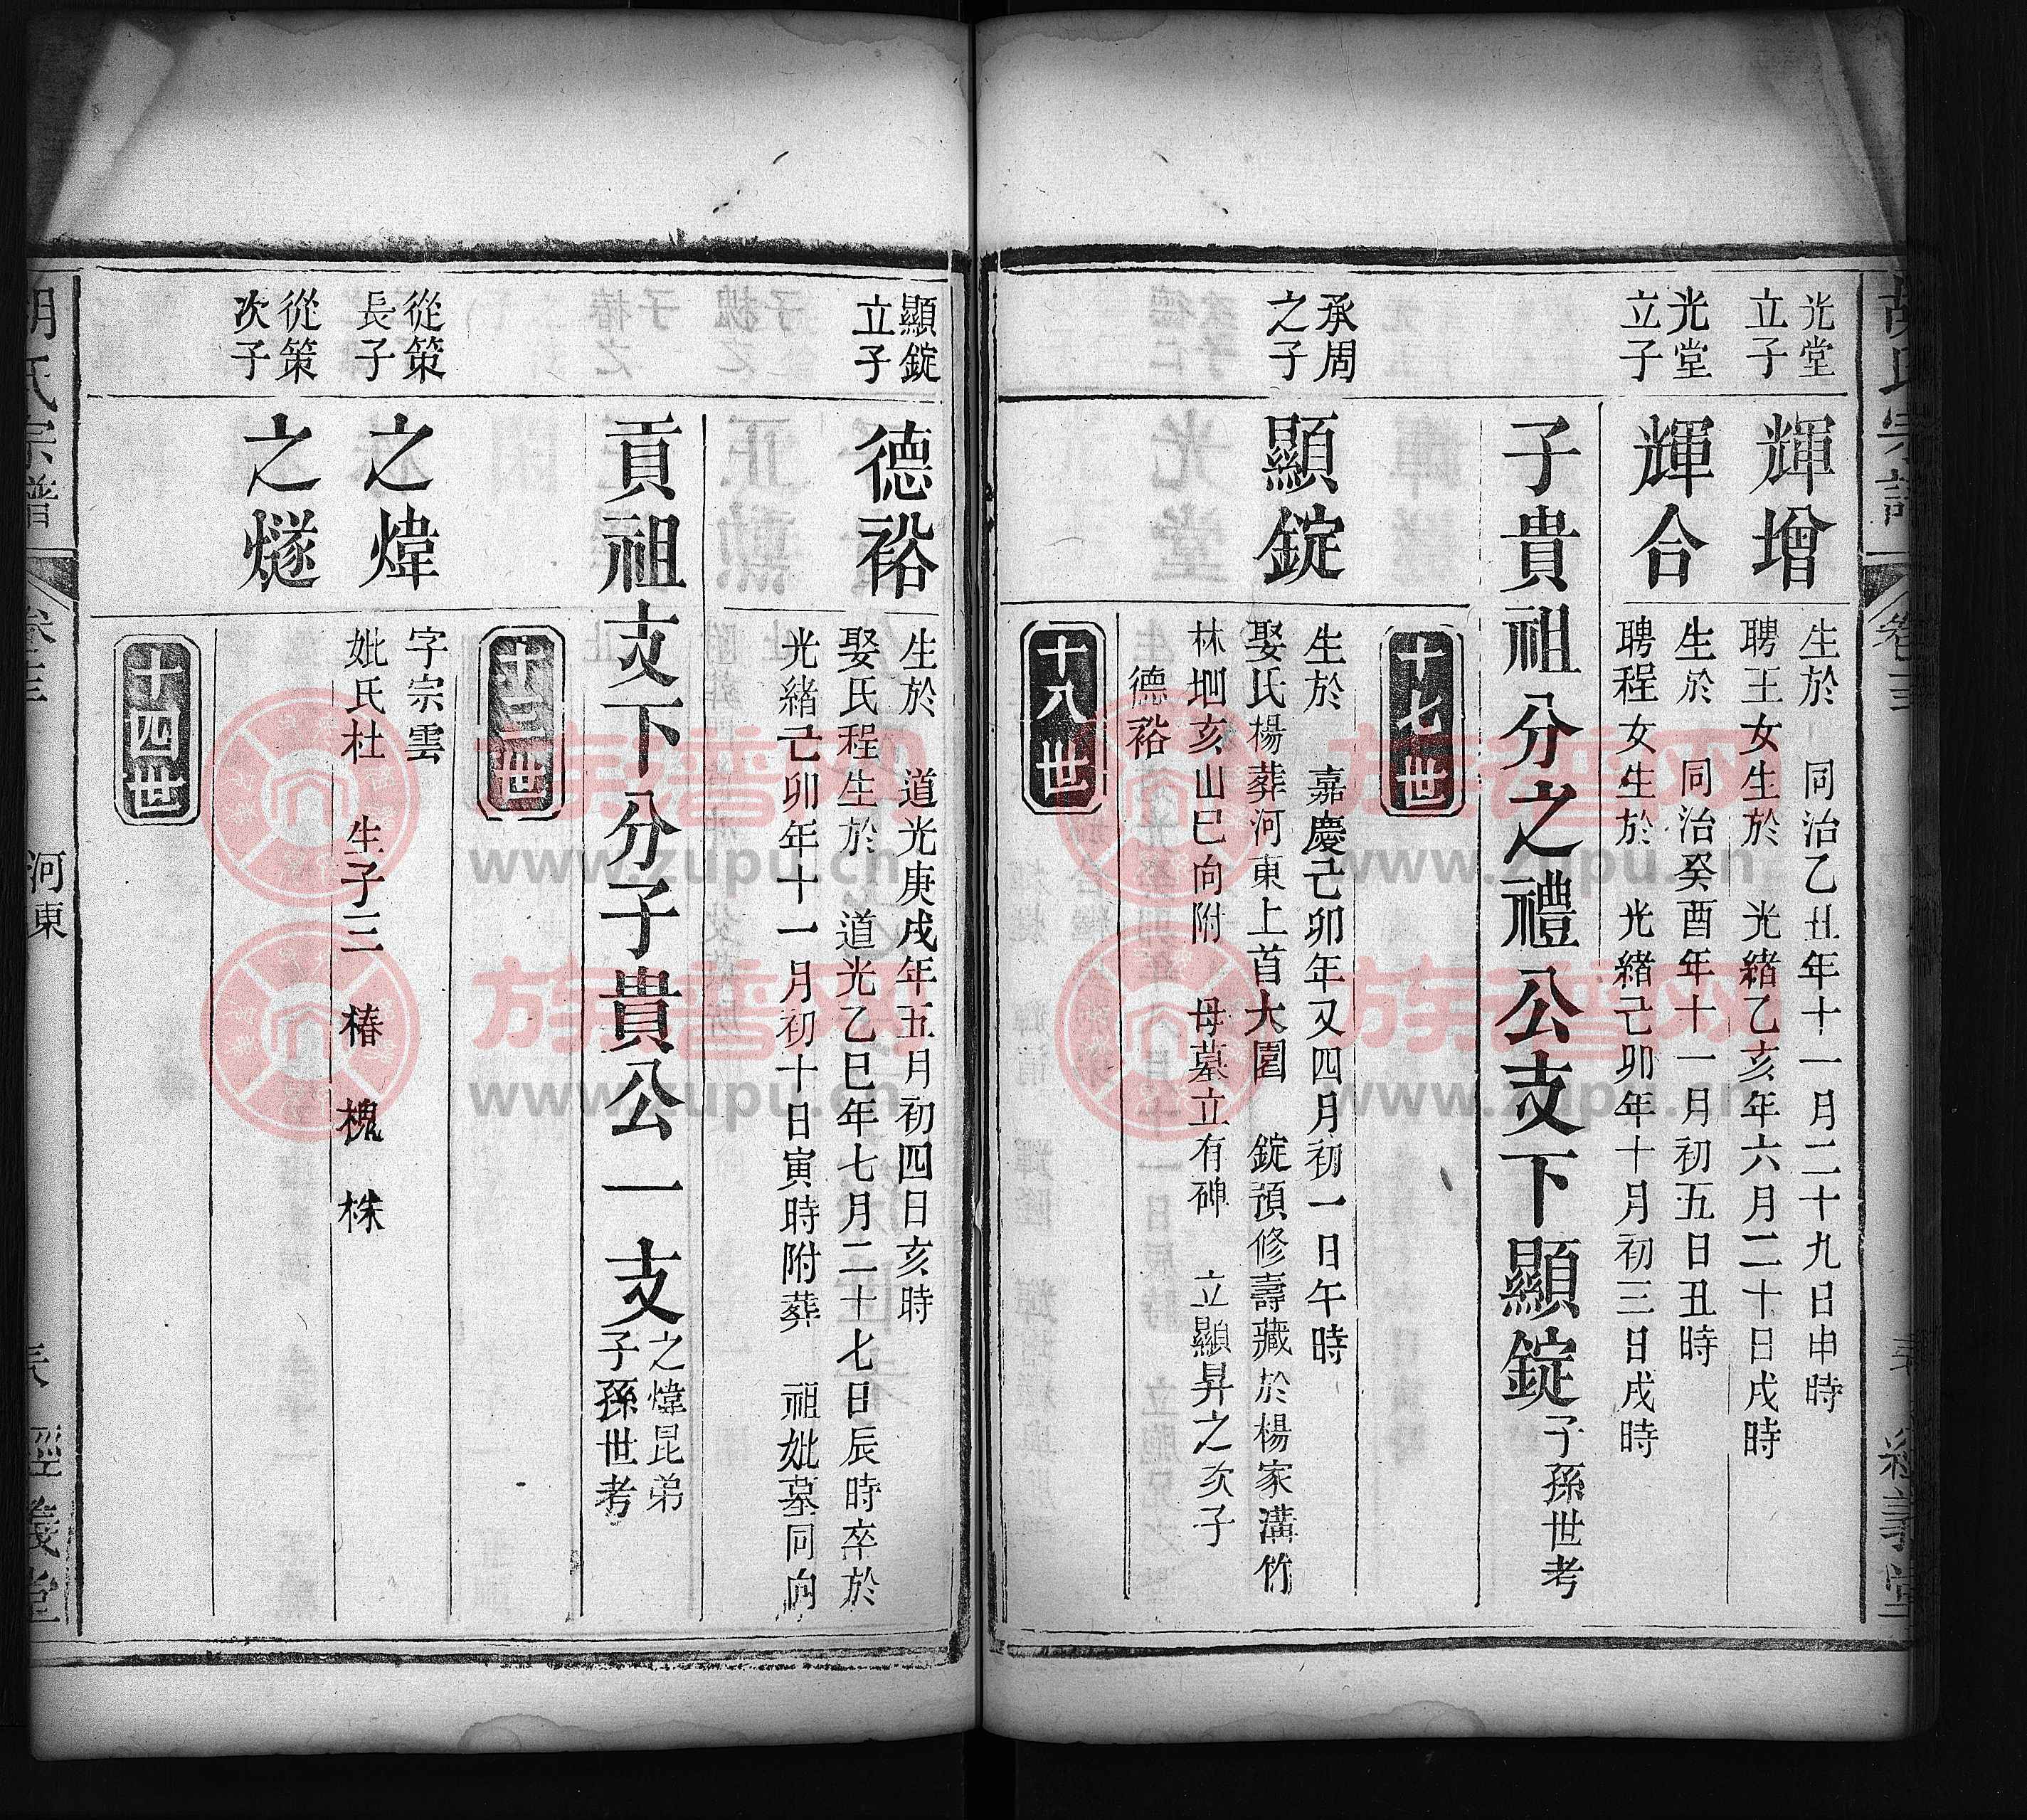 光堂
立子
輝增
生於 同治乙丑年十一月二十九日申時
聘王女生於 光緒乙亥年六月二十日戌時
光堂
立子
輝合
生於 同治癸酉年十一月初五日丑時
聘程女生於 光緒己卯年十月初三日戌時
子貴祖分之禮公支下顯錠子孫世考
十七世
承周
之子
顯錠
生於 嘉慶己卯年又四月初一日午時
娶氏楊葬河東上首大園 錠預修壽藏於楊家溝竹
林垇亥山巳向附 母墓立有碑 立顯昇之次子
德裕
十八世
顯錠
立子
德裕
生於 道光庚戌年五月初四日亥時
娶氏程生於 道光乙巳年七月二十七日辰時卒於
光緒己卯年十一月初十日寅時附葬 祖妣墓同向
貢祖支下分子貴公一支
之煒昆弟
子孫世考
十三世
從策
長子
之煒
字宗雲
妣氏杜 生子三 椿 槐 株
從策
次子
之燧
十四世
胡氏宗譜
河東
經義堂
族譜网
www.zupu.cn
族譜网
www.zupu.cn
族譜网
www.zupu.cn
族譜网
www.zupu.cn